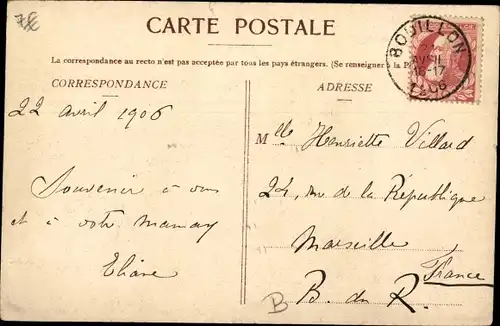 CARTE POSTALE
La correspondance au recto n'est pas acceptée par tous les pays étrangers. (Se renseigner à la
CORRESPONDANCE
ADRESSE
BOUILLON
AVRIL
17
1906
22 avril 1906
Souvenir à vous
et à votre maman
Eliane
Mlle Henriette Villard
22, rue de la République
Marseille
France
B. du R.
B